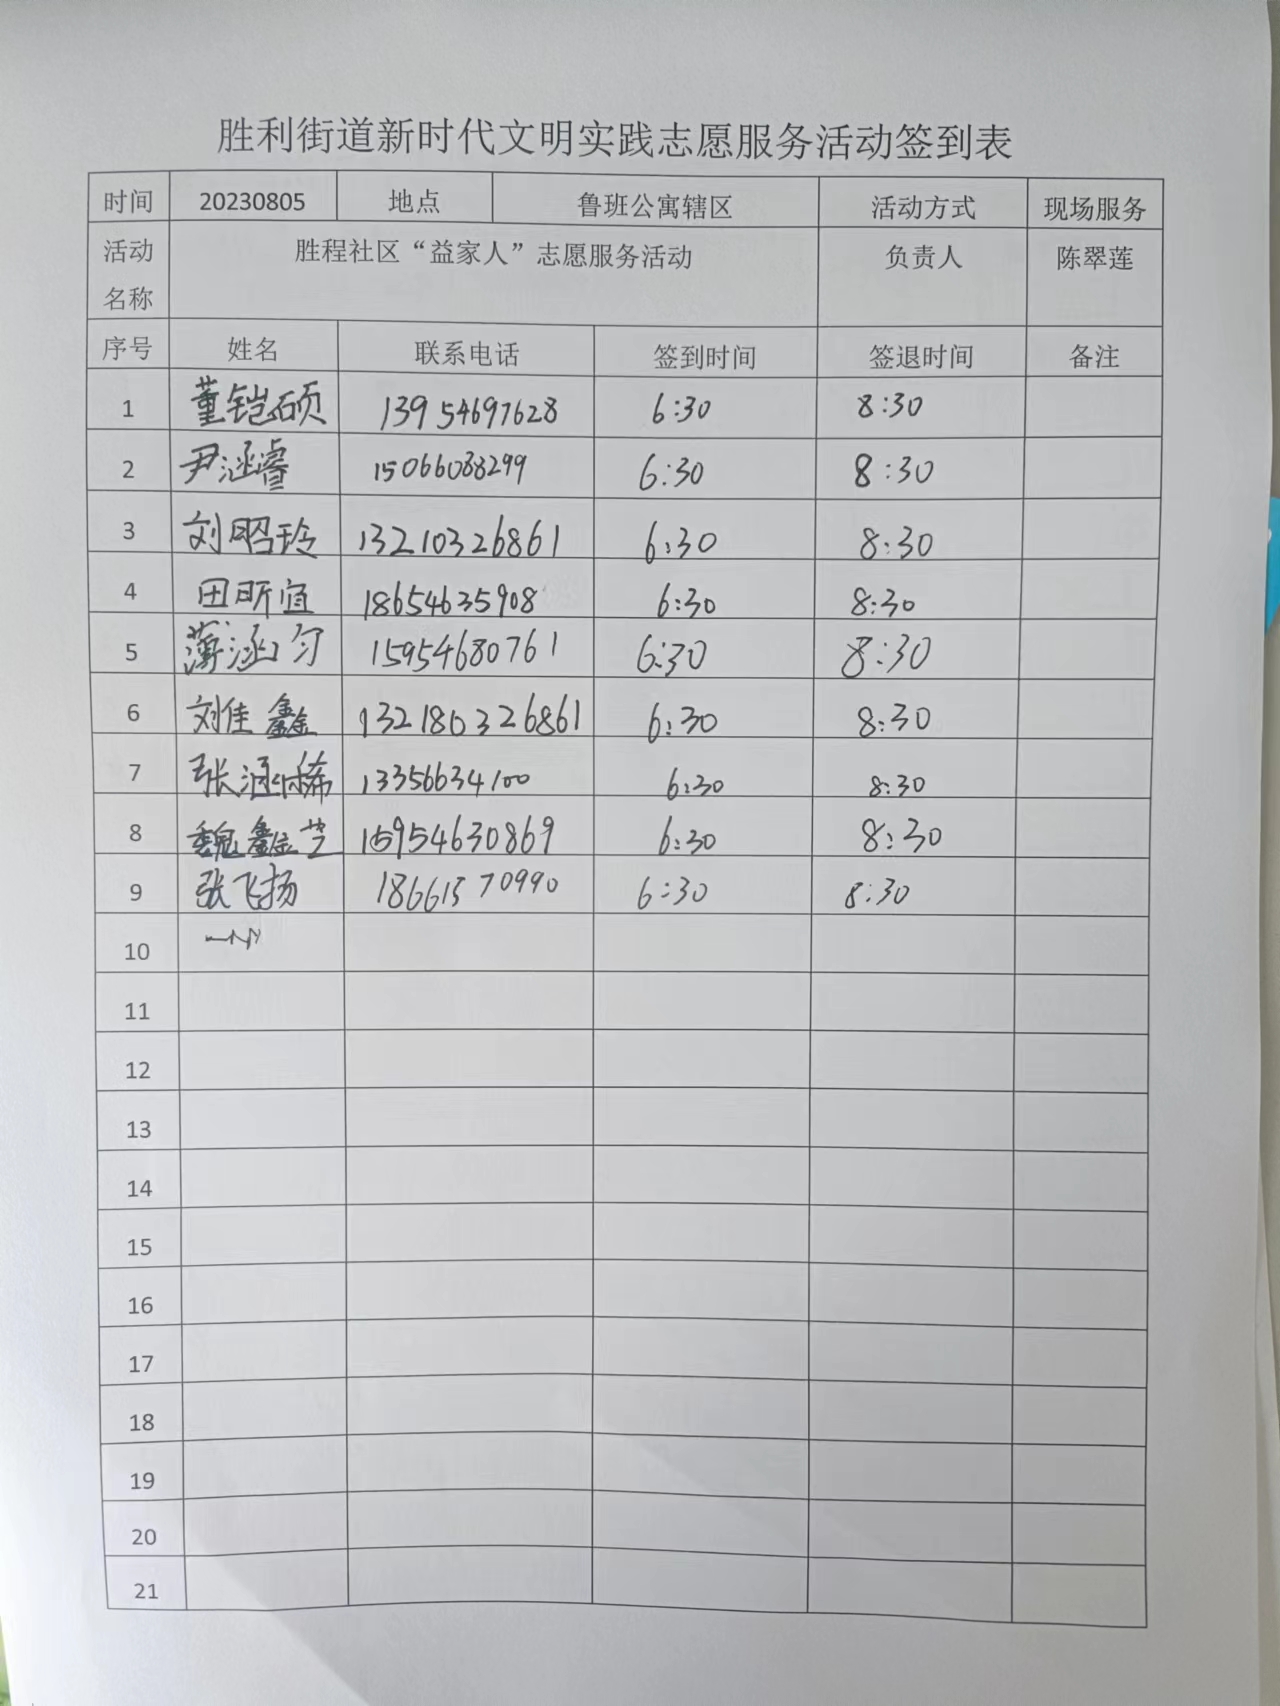 胜利街道新时代文明实践志愿服务活动签到表
时间 20230805 地点 鲁班公寓辖区 活动方式 现场服务
活动名称 胜程社区“益家人”志愿服务活动 负责人 陈翠莲
序号 姓名 联系电话 签到时间 签退时间 备注
1 董铠硕 13954697628 6:30 8:30
2 尹涵睿 15066038299 6:30 8:30
3 刘昭玲 13210326861 6:30 8:30
4 田昕宜 18654635908 6:30 8:30
5 薄涵匀 15954680761 6:30 8:30
6 刘佳鑫 132180326861 6:30 8:30
7 张涵稀 13356634100 6:30 8:30
8 魏鑫芝 15954630869 6:30 8:30
9 张飞扬 18661570990 6:30 8:30
10
11
12
13
14
15
16
17
18
19
20
21